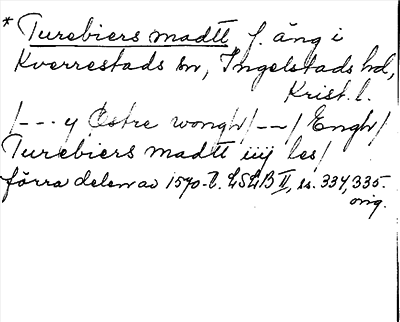 * Turebiers madtt f. äng i
Kverrestads sn, Ingelstads hd,
Krist. l.
/--- y Østre wongh/--/ Engh/
Turebiers madtt iiij les/
förra delen av 1570-t. LSLB II, s. 334, 335.
orig.